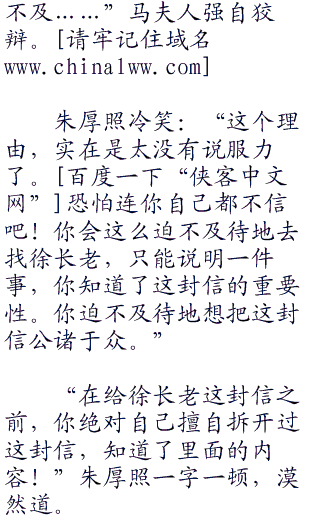 不及……”马夫人强自狡
辩。[请牢记住域名
www.china1ww.com]
朱厚照冷笑：“这个理
由，实在是太没有说服力
了。[百度一下“侠客中文
网”]恐怕连你自己都不信
吧！你会这么迫不及待地去
找徐长老，只能说明一件
事，你知道了这封信的重要
性。你迫不及待地想把这封
信公诸于众。”
“在给徐长老这封信之
前，你绝对自己擅自拆开过
这封信，知道了里面的内
容！”朱厚照一字一顿，漠
然道。